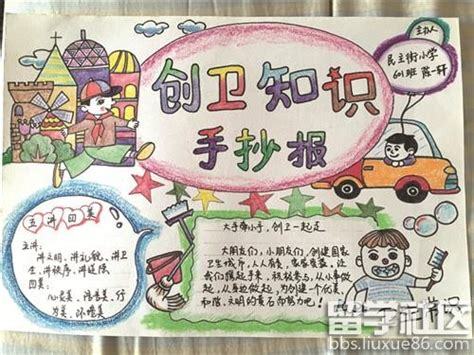 创卫知识
手抄报
主办人
民主街小学
601班 陈一轩
五讲四美
五讲:
讲文明、讲礼貌、讲卫
生、讲秩序、讲道德
四美:
心灵美、语言美、行
为美、环境美
大手牵小手,创卫一起走
大朋友们,小朋友们,创建国家
卫生城市,人人有责,
我们携起手来,积极参与,从小事做
起,从身边做起,为创建一个优美、
和谐、文明的黄石而努力吧!
常识
留学社区
bbs.liuxue86.com